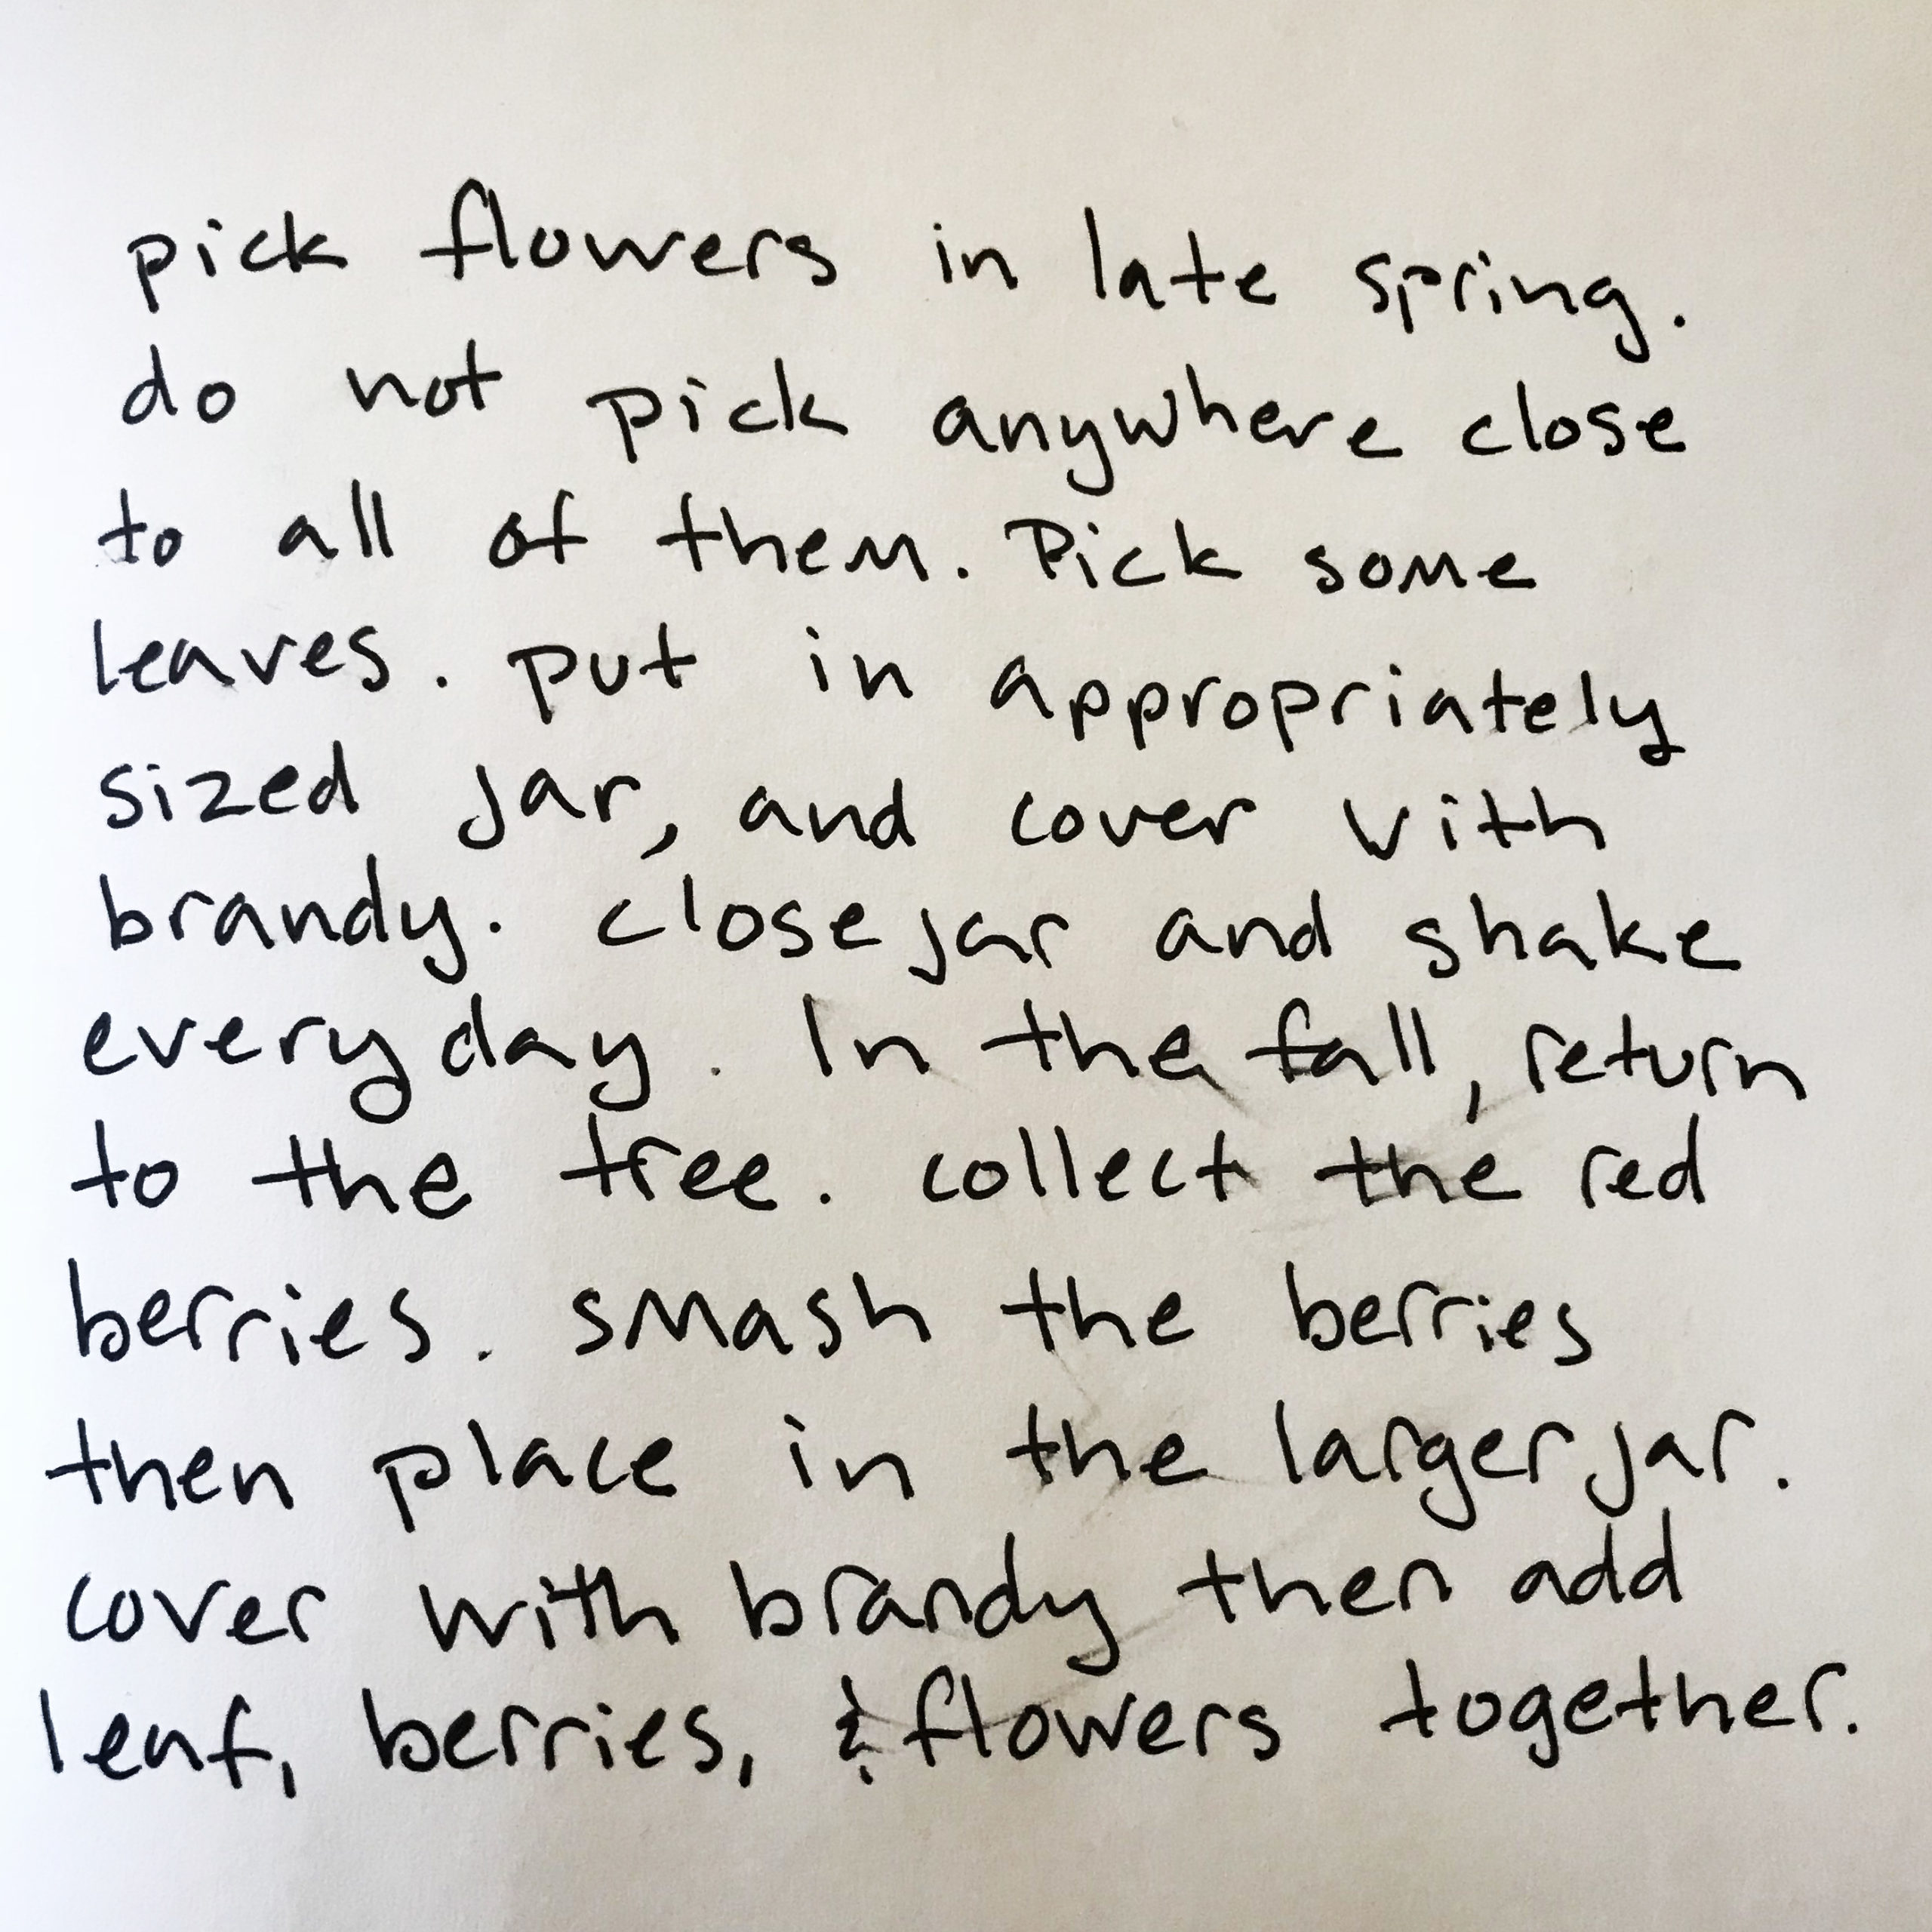 pick flowers in late spring.
do not pick anywhere close
to all of them. Pick some
leaves. put in appropriately
sized jar, and cover with
brandy. close jar and shake
every day. In the fall, return
to the tree. collect the red
berries. smash the berries
then place in the larger jar.
cover with brandy then add
leaf, berries, & flowers together.